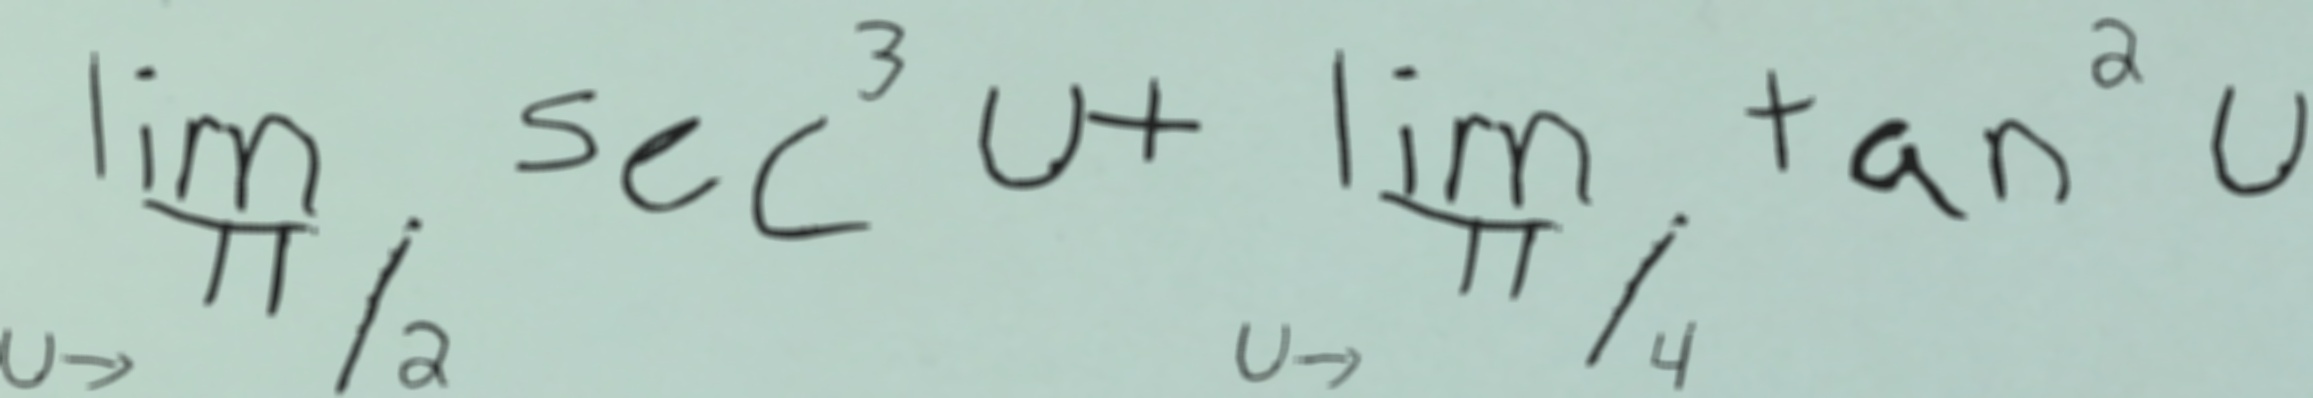 \lim_{u \to \pi/2} \sec^3 u + \lim_{u \to \pi/4} \tan^2 u